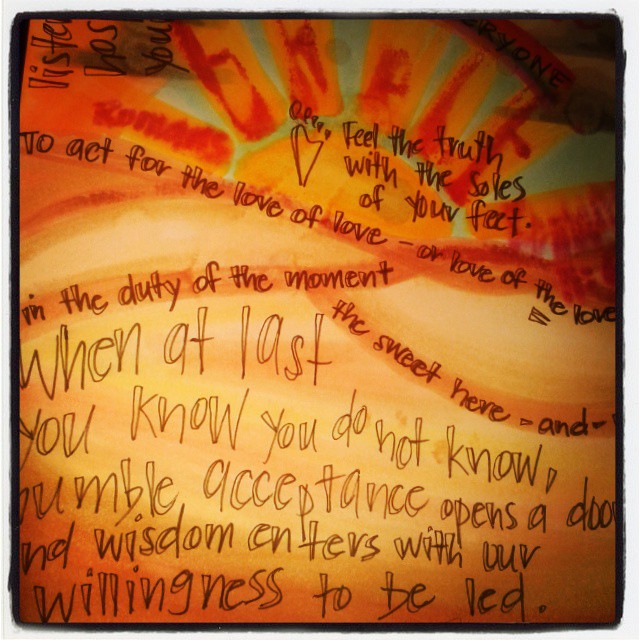 EVERYONE
ROMANS
Feel the truth
with the soles
of your feet.
To act for the love of love - or love of the love
in the duty of the moment
the sweet here - and -
When at last
you know you do not know,
umble acceptance opens a doo
nd wisdom enters with our
willingness to be led.